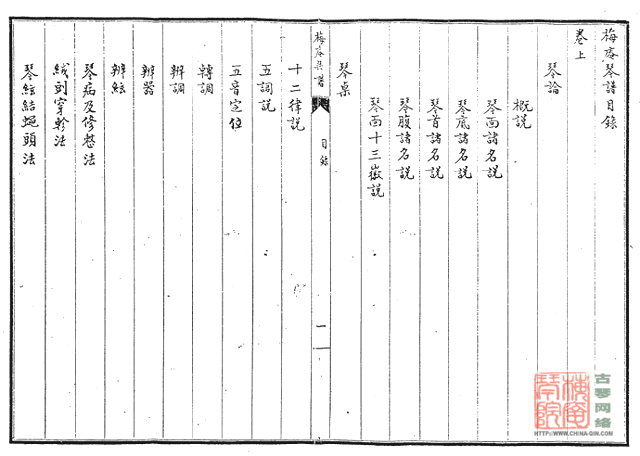 梅庵琴譜目錄
卷上
琴論
概說
琴面諸名說
琴底諸名說
琴首諸名說
琴腹諸名說
琴面十三徽說
琴桌
梅庵琴譜
目錄
一
十二律說
五調說
五音定位
轉調
辨調
辨器
辨絃
琴病及修整法
絨剅穿軫法
琴絃結蠅頭法
梅庵琴院
古琴网络
HTTP://WWW.CHINA-QIN.COM